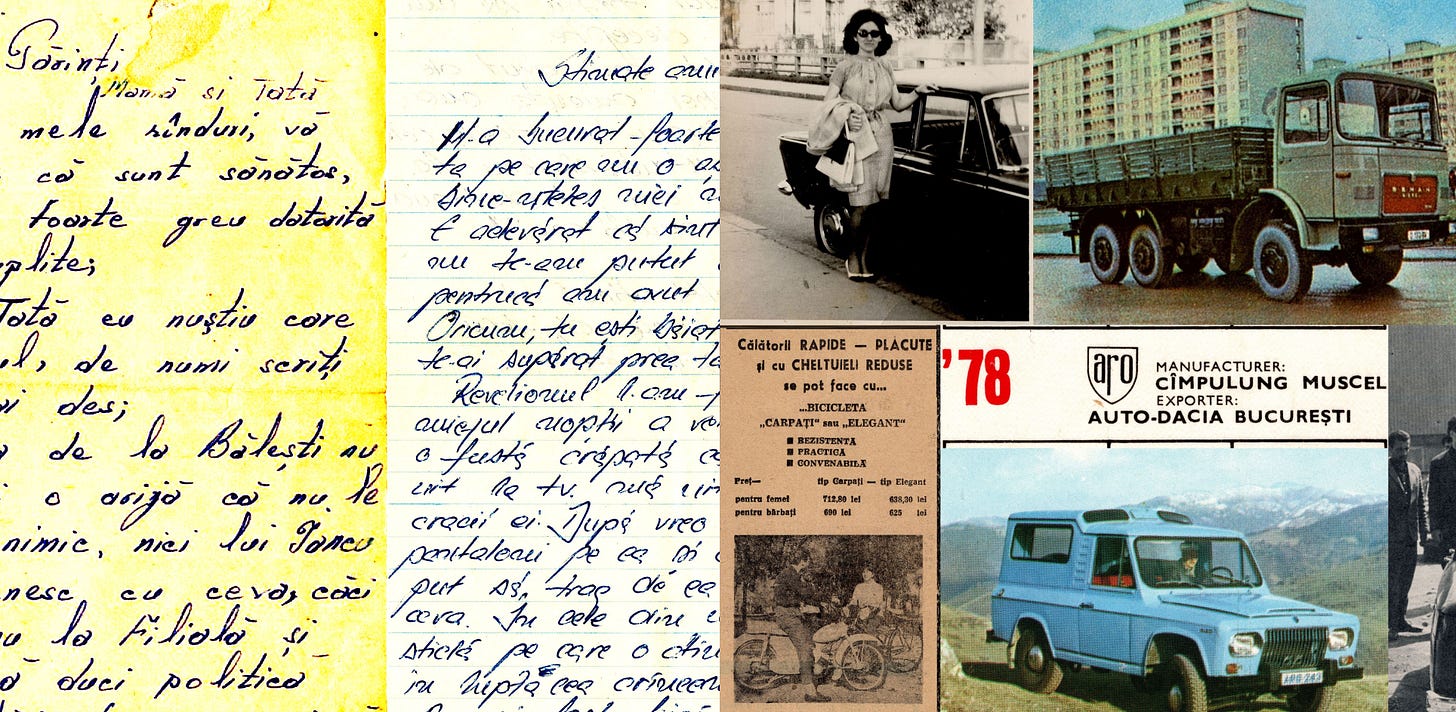 Părinți
Mamă si Tată
mele rînduri, vă
că sunt sănătos,
foarte greu datorită
plite;
Tată eu nuștiu care
l, de numi scriți
i des;
de la Bălești nu
i o grijă că nu le
nimic, nici lui Iancu
nesc cu ceva, căci
u la Filială și
ă duci politică
Stimate ami
M-a bucurat foarte
ta pe care am o
nici
E adevărat că sint
nu te-am putut
pentrucă am avut
Oricum, tu ești băiat
te-ai supărat prea ta
Revelionul l-am
miezul nopții a
o fustă crăpată
la tv.
cracii ei. După vreo
pantaloni pe ea și
put să trag de ea
ceva. In cele din
sticlă pe care o
in luptă cea
ROMAN
Călătorii RAPIDE — PLACUTE
și cu CHELTUIELI REDUSE
se pot face cu...
...BICICLETA
„CARPAȚI" sau „ELEGANT"
■ REZISTENTA
■ PRACTICA
■ CONVENABILA
Preț— tip Carpați — tip Elegant
pentru femei 712,80 lei 638,30 lei
pentru bărbați 690 lei 625 lei
'78
aro
MANUFACTURER:
CÎMPULUNG MUSCEL
EXPORTER:
AUTO-DACIA BUCUREȘTI